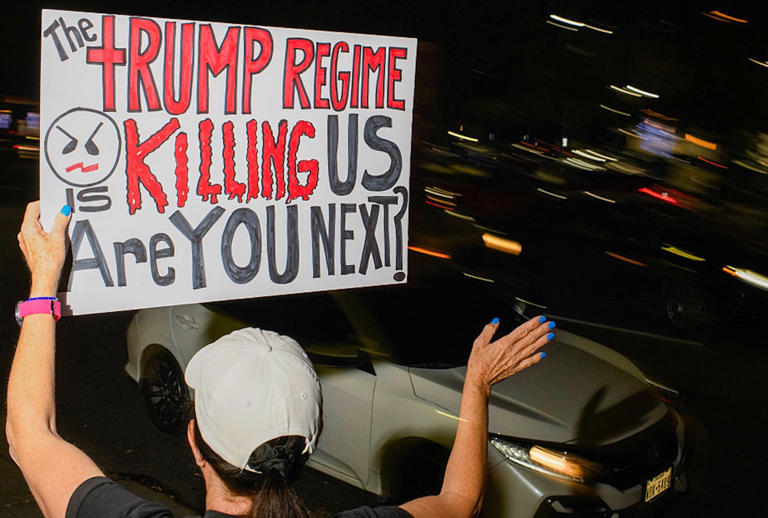 The tRUMP REGIME
IS KILLING US
Are YOU NEXT?